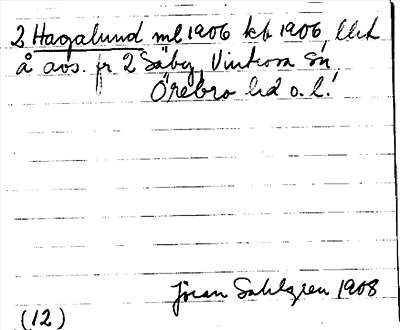 2 Hagalund ml 1906 kb 1906, llht
å avs. fr 2 Säby, Vintrosa sn,
Örebro hd o. l.
Jöran Sahlgren 1908
(12)